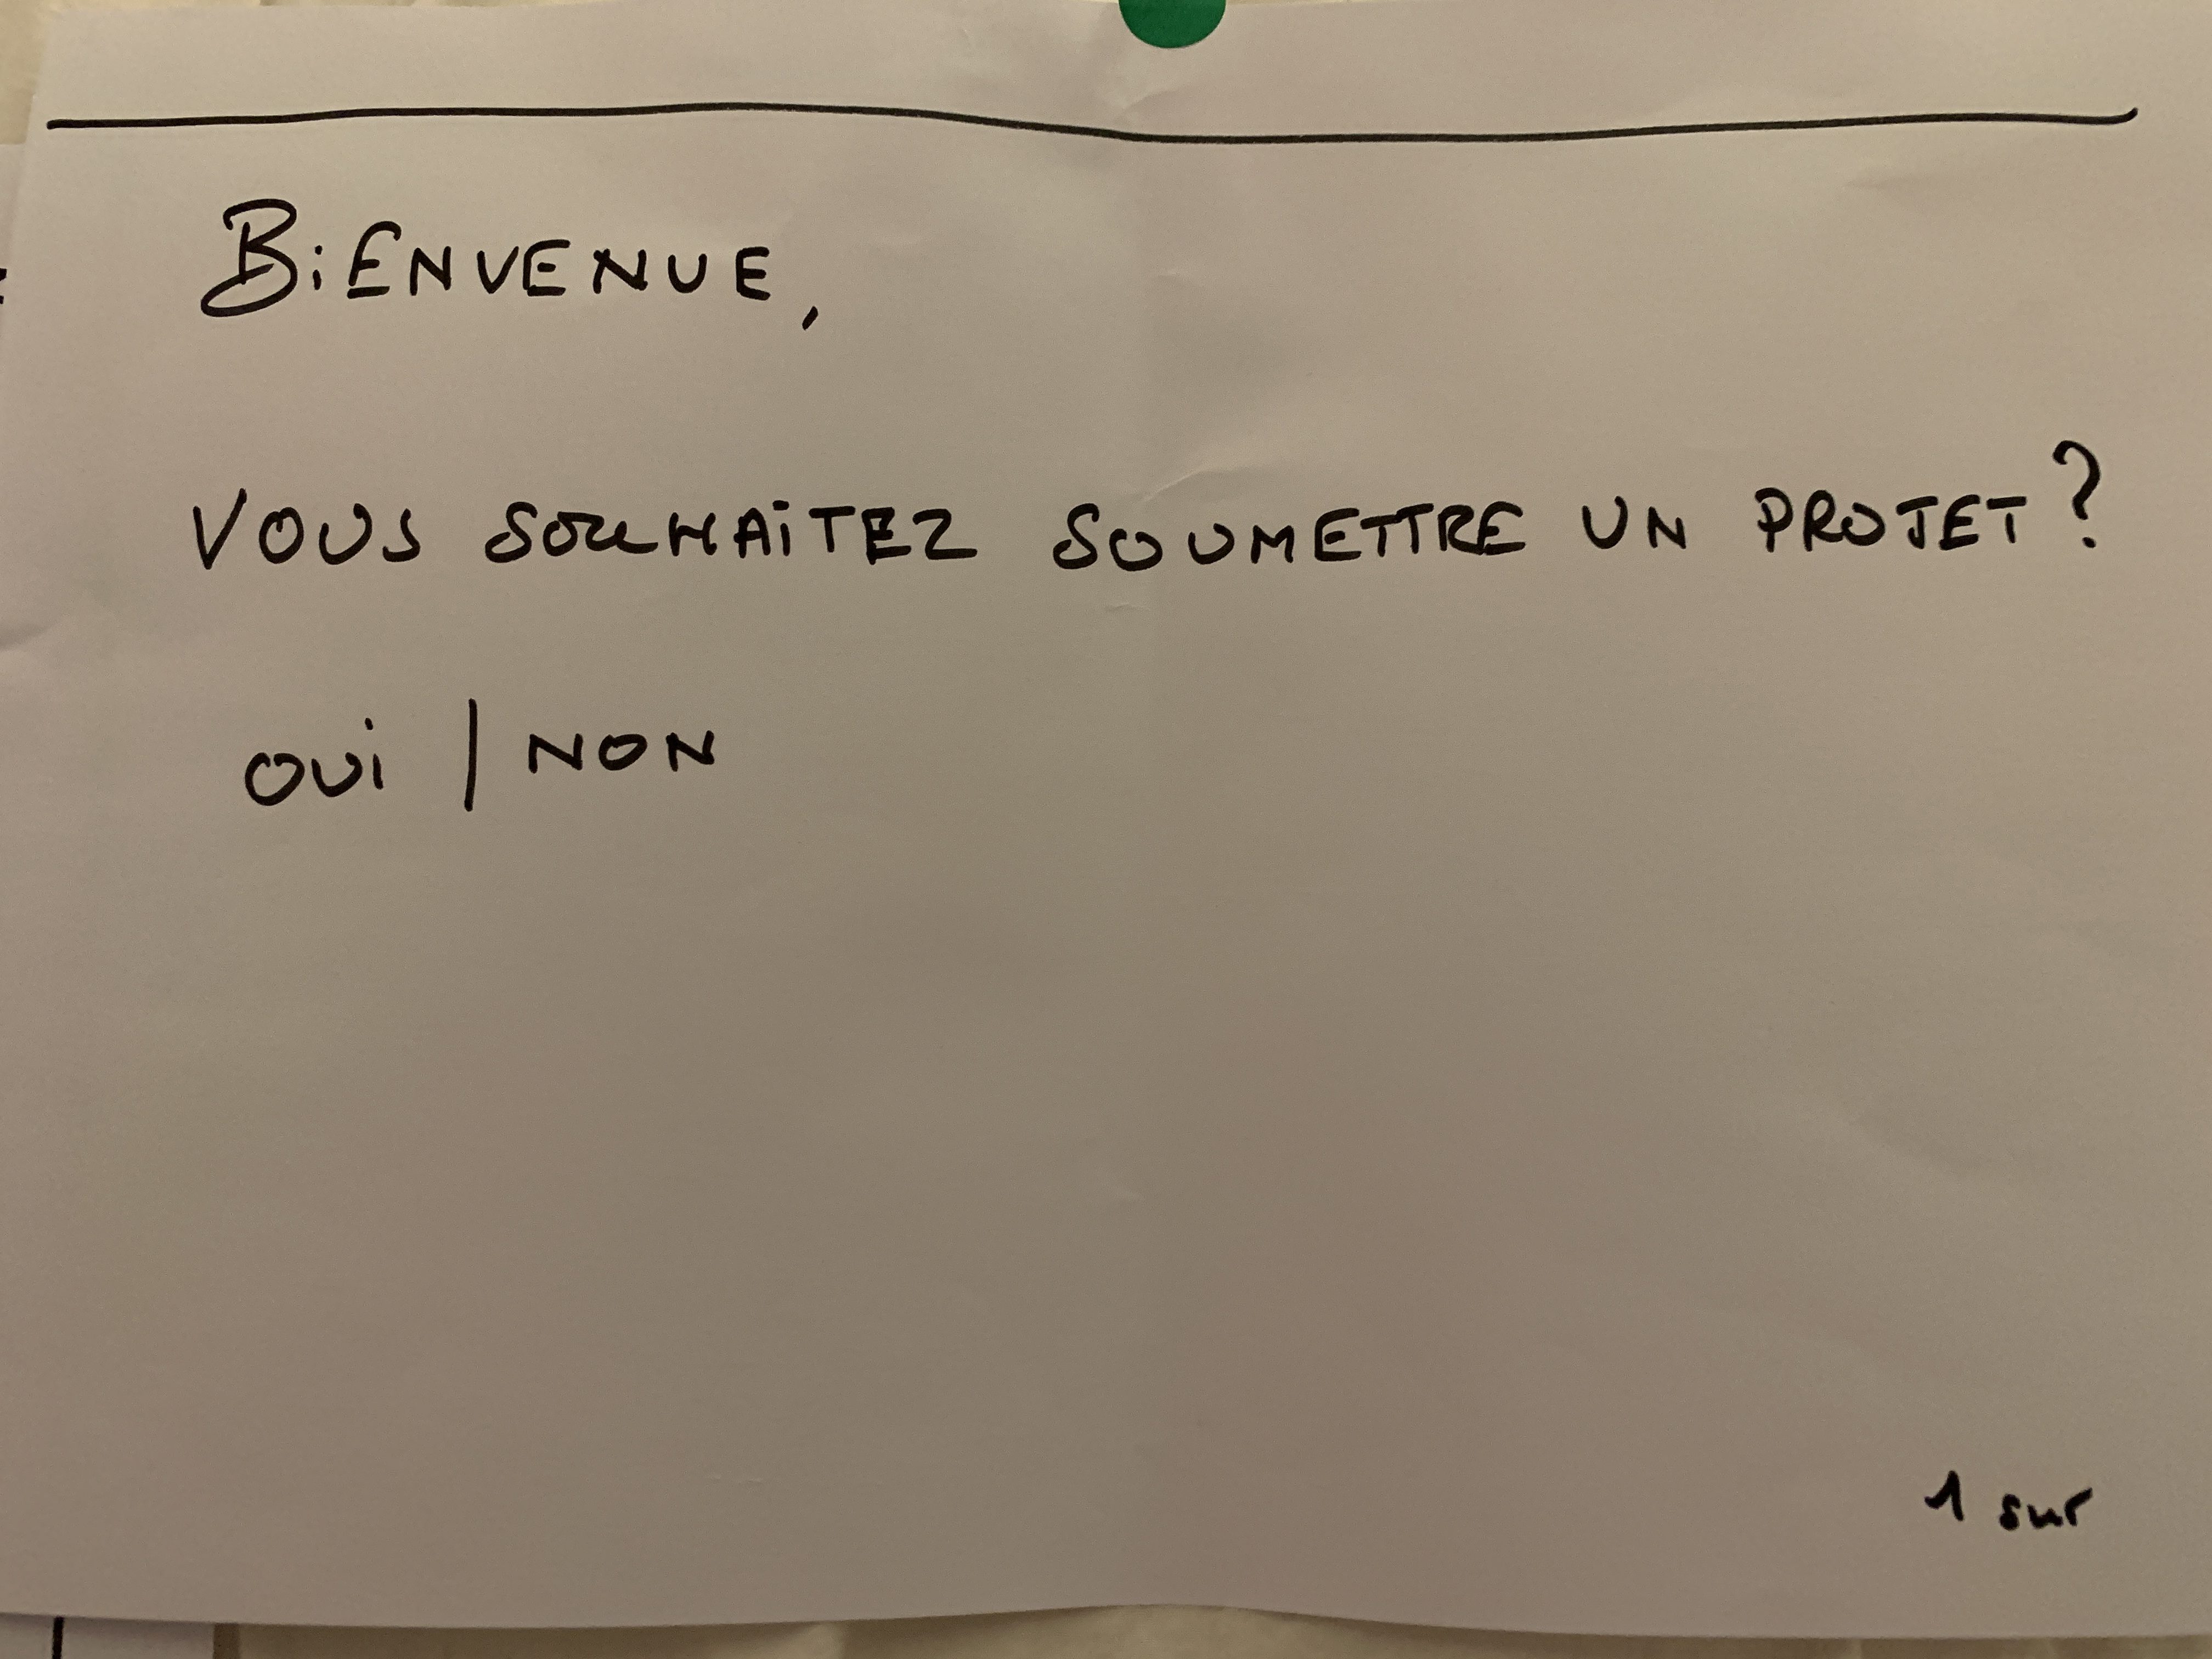 BiENVENUE,
VOUS SOUHAiTEZ SOUMETTRE UN PROJET ?
OUi | NON
1 sur